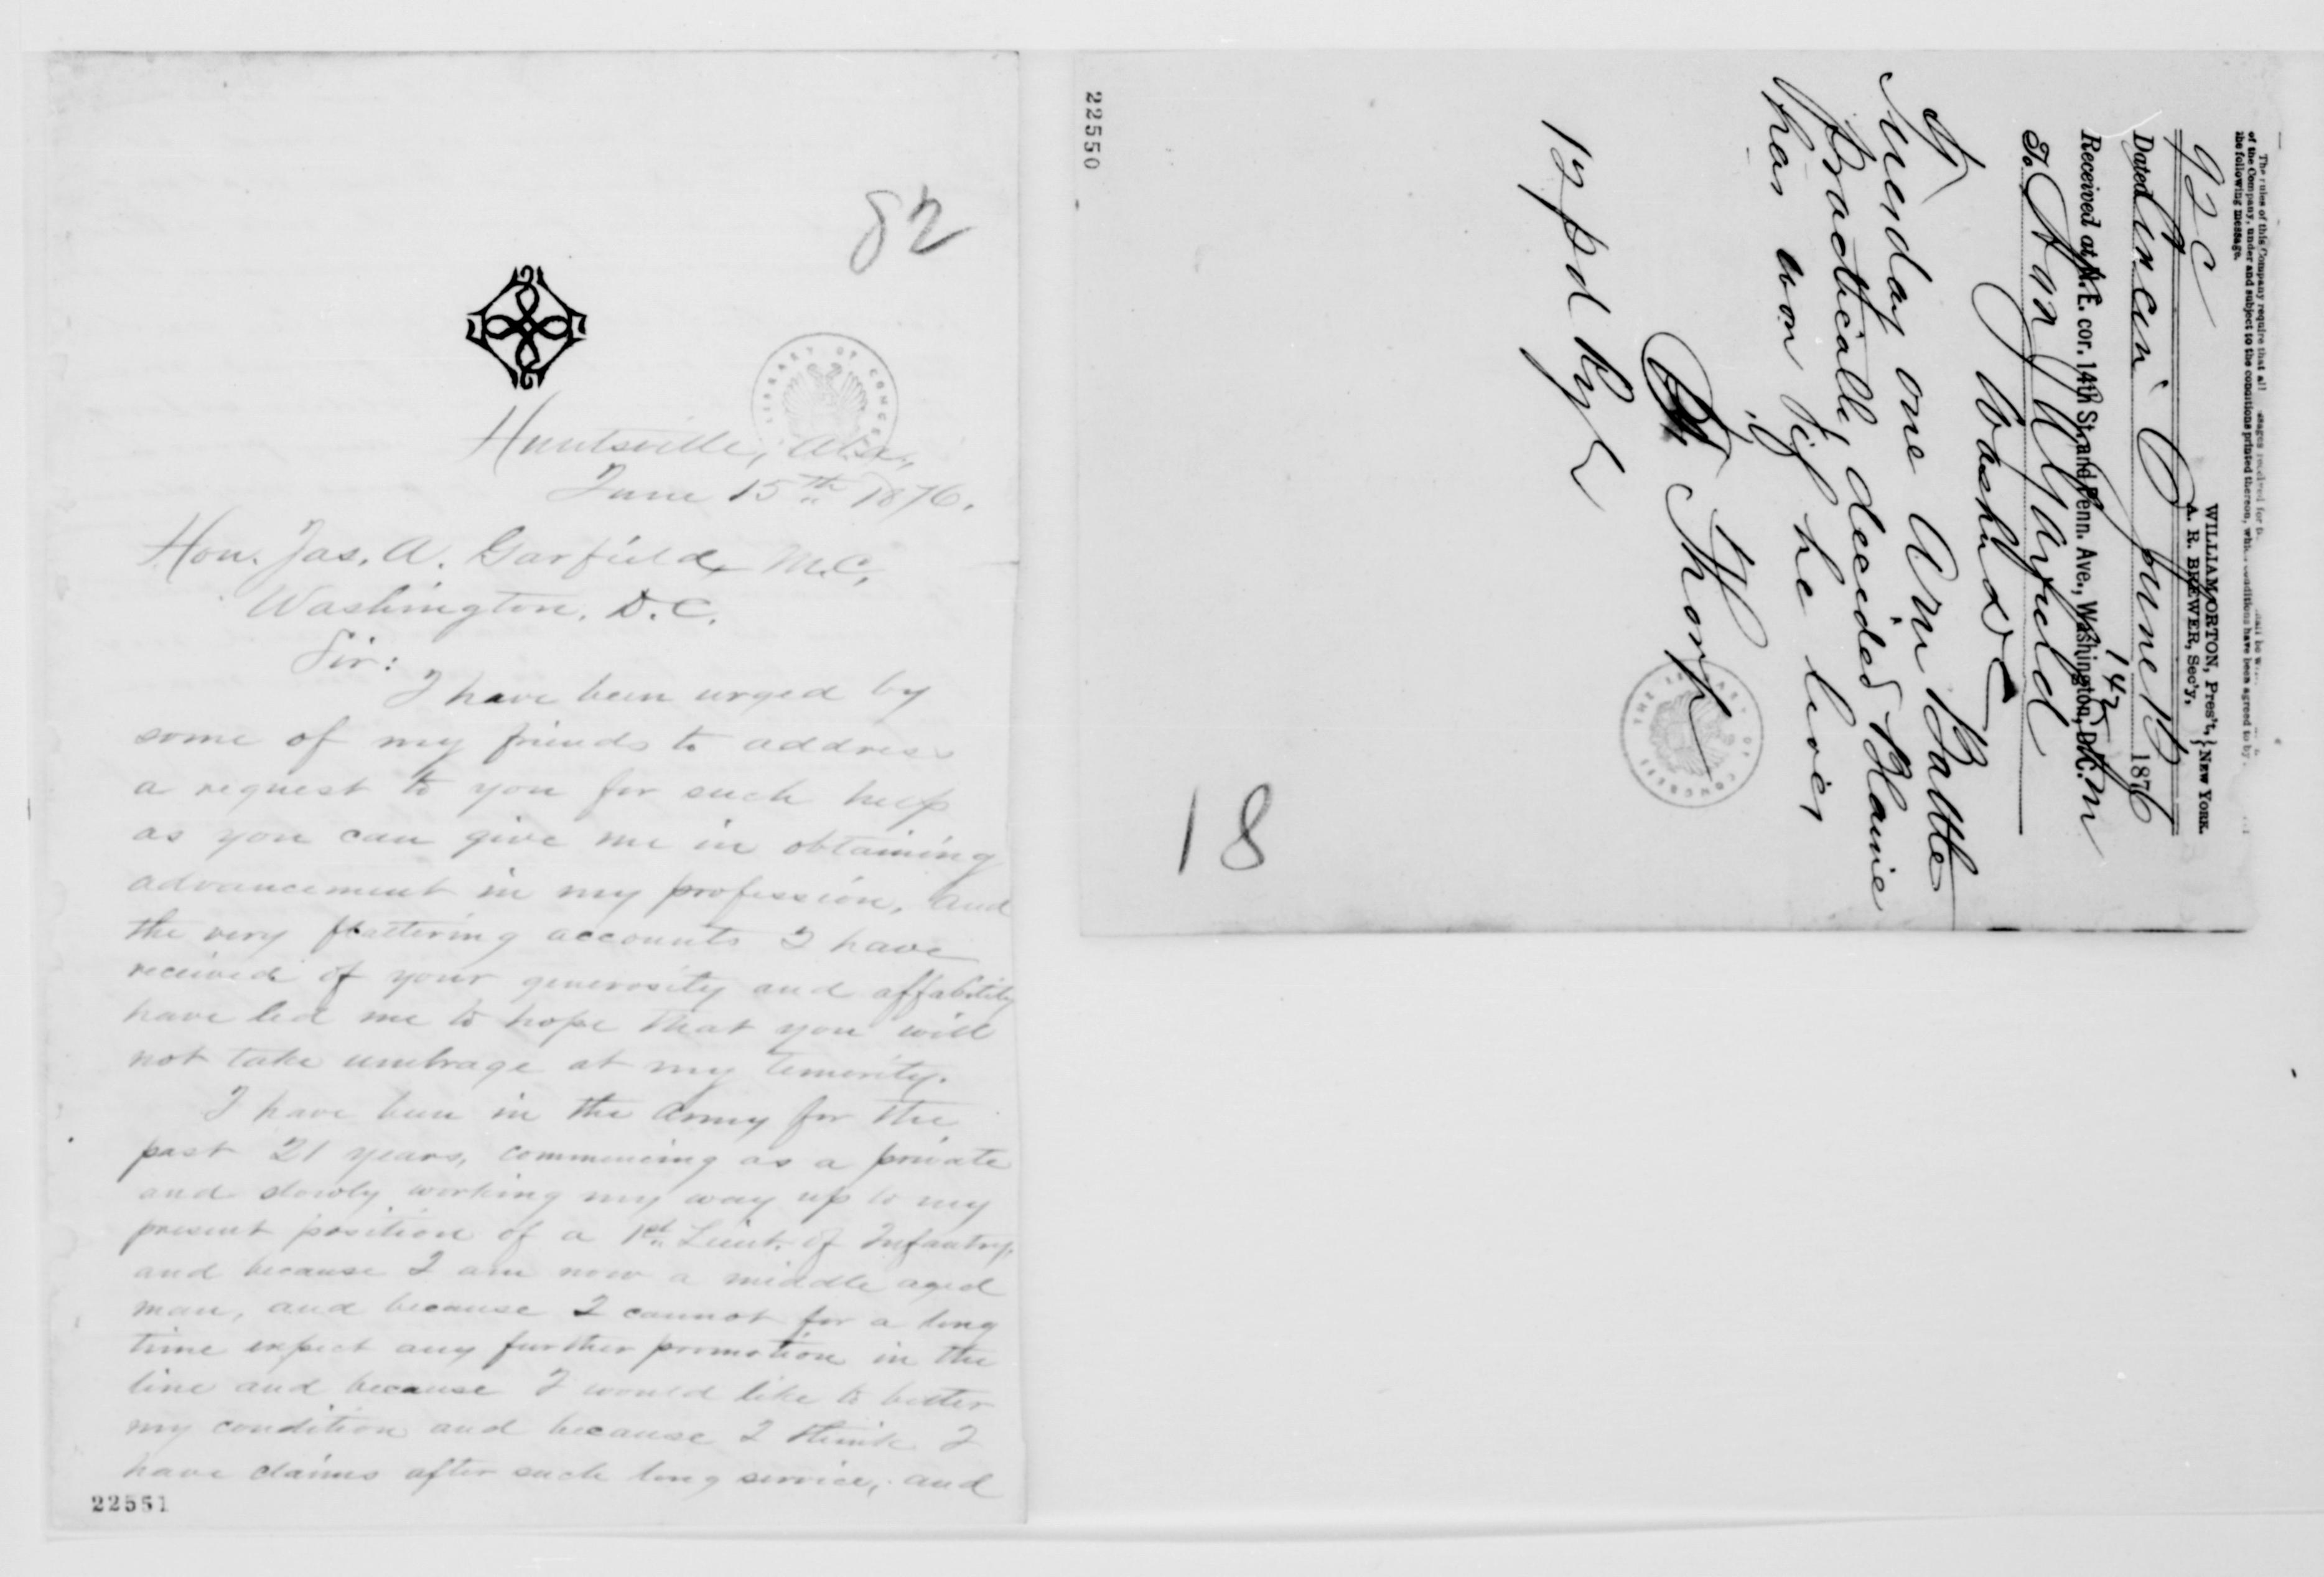 82
LIBRARY OF CONGRESS
Huntsville, Ala.,
June 15th 1876.
Hon. Jas. A. Garfield, M.C.,
Washington, D.C.
Sir:
I have been urged by
some of my friends to address
a request to you for such help
as you can give me in obtaining
advancement in my profession, and
the very flattering accounts I have
received of your generosity and affability
have led me to hope that you will
not take umbrage at my temerity.
I have been in the Army for the
past 21 years, commencing as a private
and slowly working my way up to my
present position of a 1st Lieut. of Infantry,
and because I am now a middle aged
man, and because I cannot for a long
time expect any further promotion in the
line and because I would like to better
my condition and because I think I
have claims after such long service, and
22551
22550
The rules of this Company require that all messages received for
of the Company, under and subject to the conditions printed thereon, which conditions have been agreed to by
the following message.
WILLIAM ORTON, Pres't,
A. R. BREWER, Sec'y, } NEW YORK.
92 C
Dated Cincin O June 15 1876
Received at N. E. cor. 14th St. and Penn. Ave., Washington, D.C. 142 Pm
To Hon J A Garfield
Washn DC
Sunday one Arm Battle
Practically decided Blaine
has won if he lives
Thorp
12 pd
THE LIBRARY OF CONGRESS
18